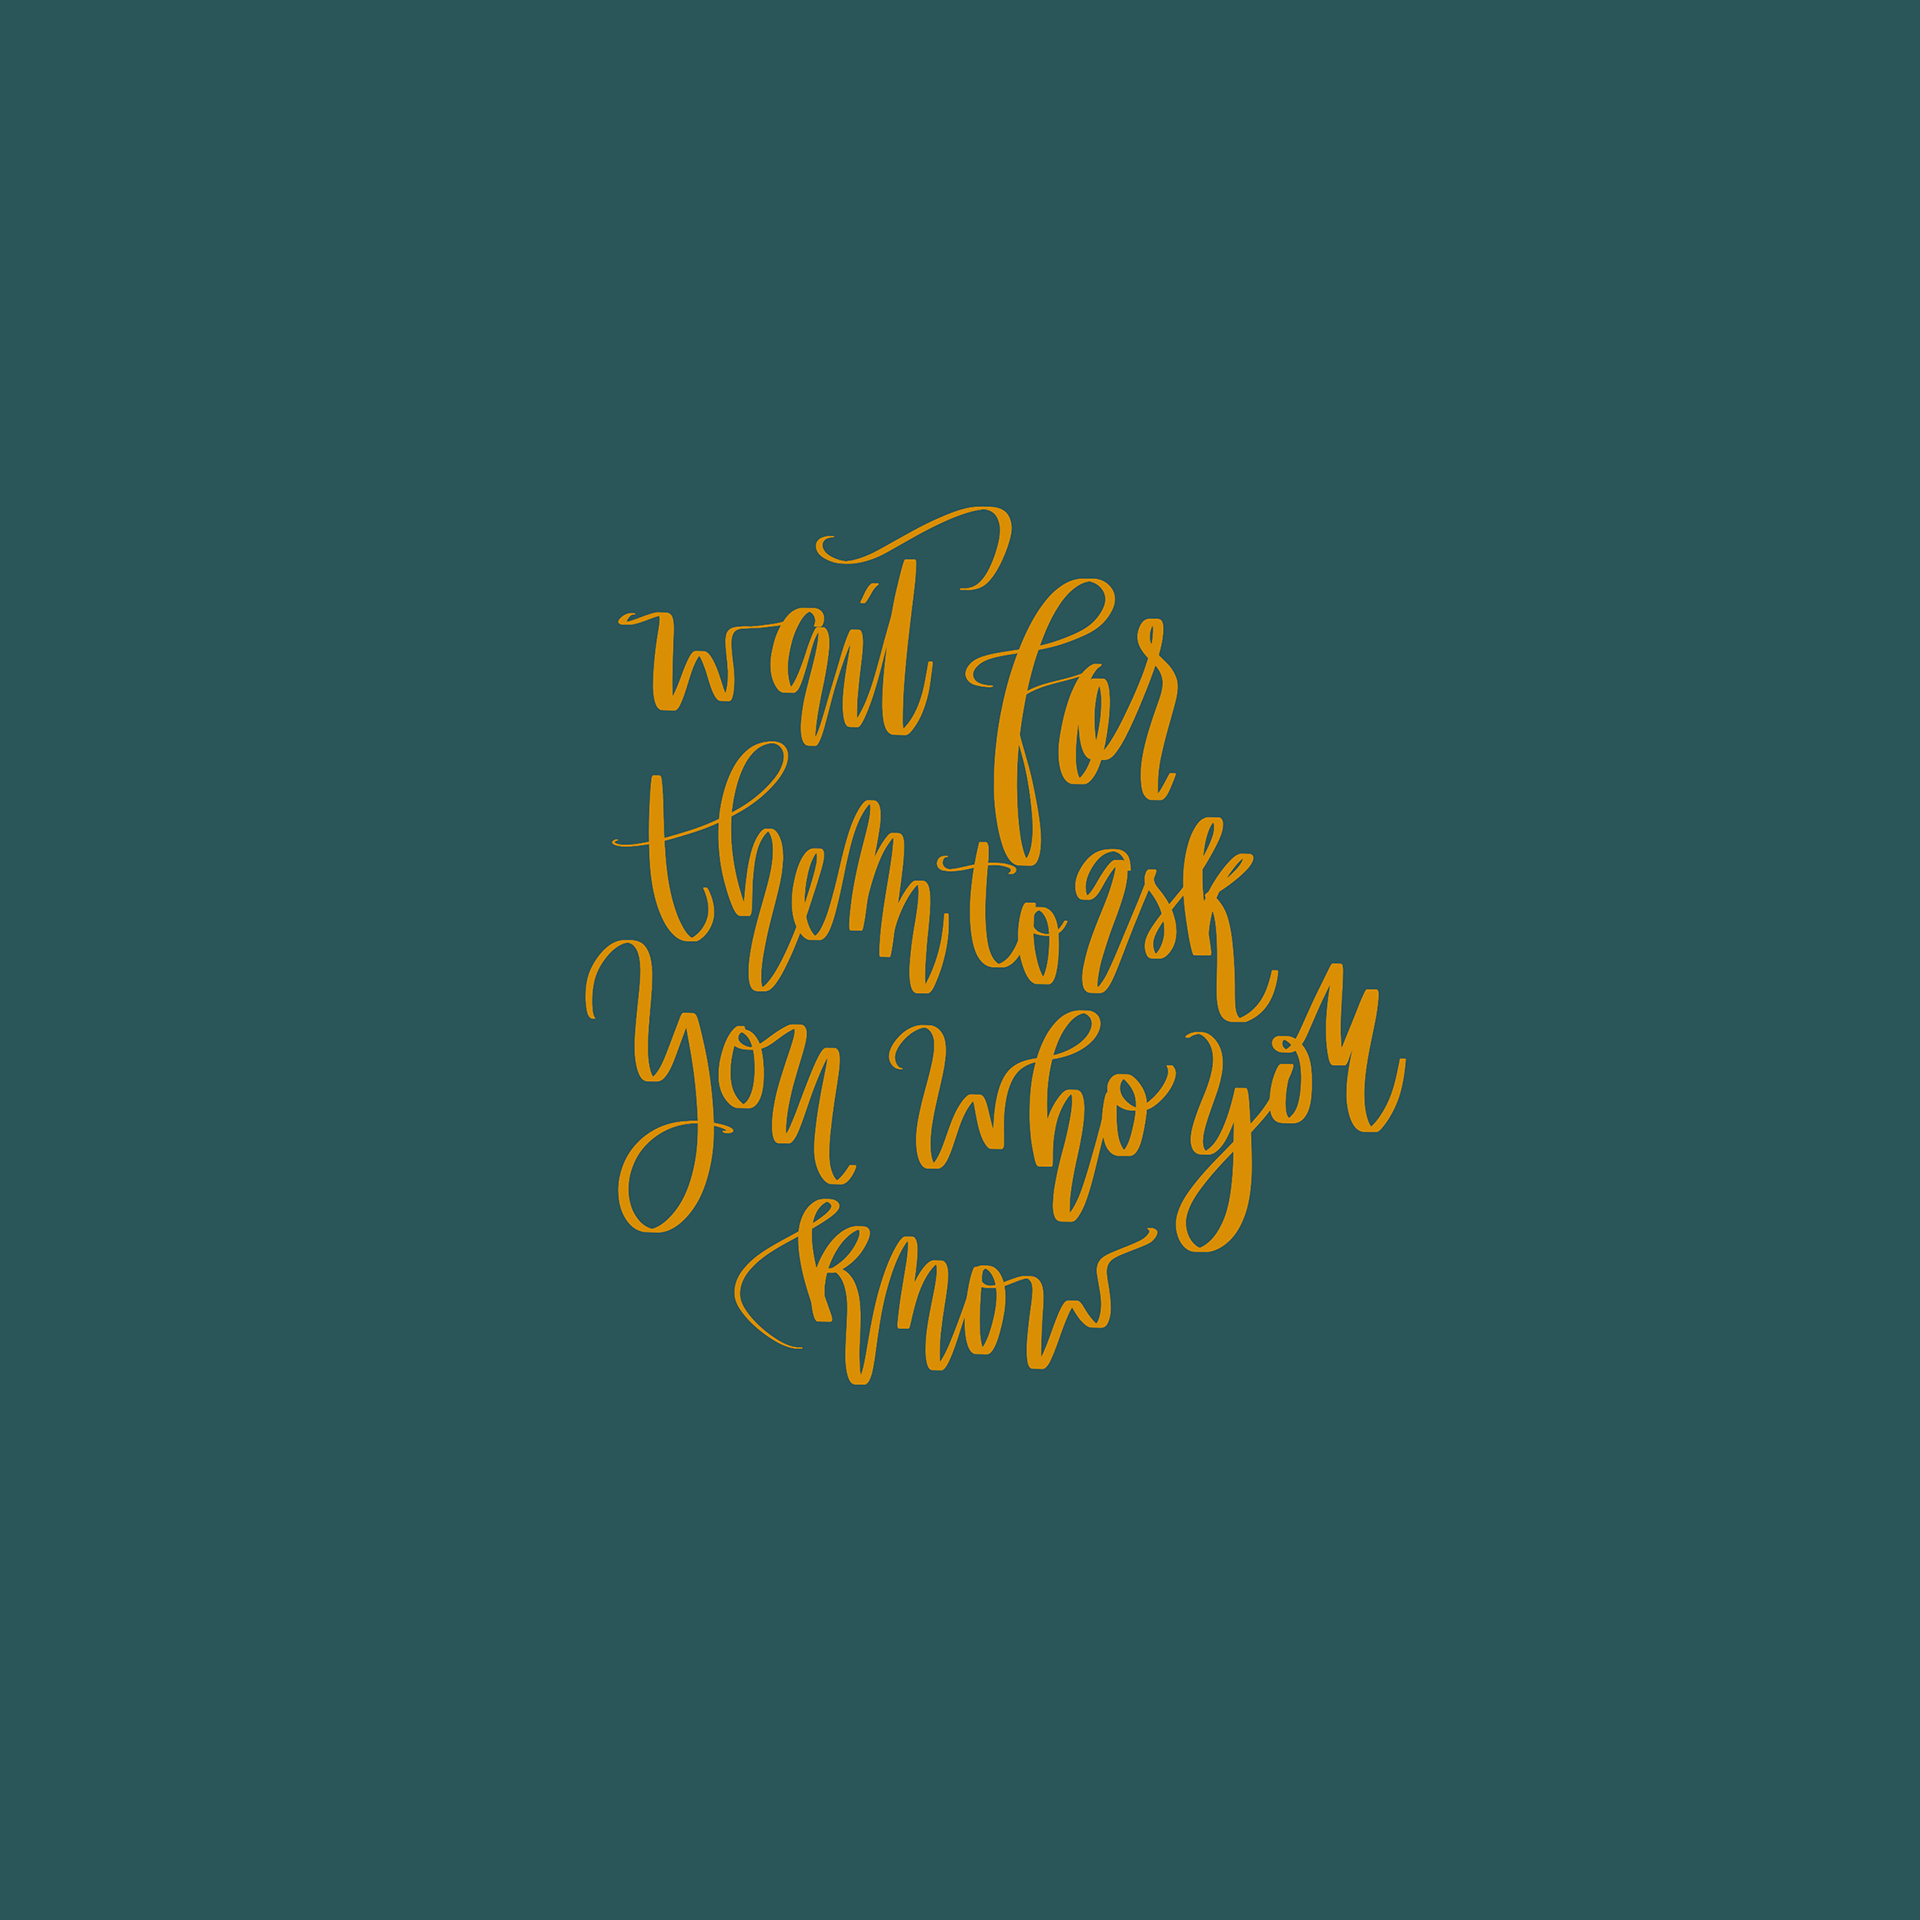 wait for
them to ask
you who you
know